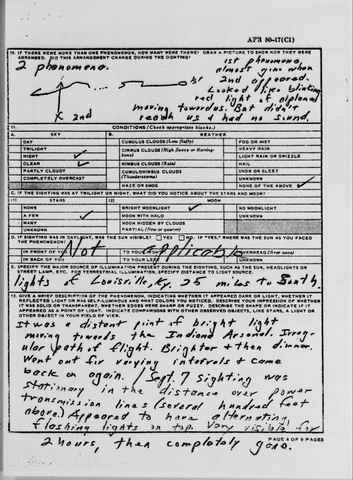 AFR 80-17(C1)
10. IF THERE WERE MORE THAN ONE PHENOMENON, HOW MANY WERE THERE? DRAW A PICTURE TO SHOW HOW THEY WERE
ARRANGED. DID THIS ARRANGEMENT CHANGE DURING THE SIGHTING?
2 phenomena.
1st phenomena,
almost gone when
2nd appeared.
Looked like blinking
red light of airplane
moving towards us. But didn't
reach us & had no sound.
1st
2nd
11. CONDITIONS (Check appropriate blocks.)
A. SKY
B. WEATHER
DAY
CUMULUS CLOUDS (Low fluffy)
FOG OR MIST
TWILIGHT
CIRRUS CLOUDS (High fleecy or Herringbone)
HEAVY RAIN
NIGHT
LIGHT RAIN OR DRIZZLE
CLEAR
NIMBUS CLOUDS (Rain)
HAIL
PARTLY CLOUDY
CUMULONIMBUS CLOUDS (Thunderstorms)
SNOW OR SLEET
COMPLETELY OVERCAST
UNKNOWN
HAZE OR SMOG
NONE OF THE ABOVE
C. IF THE SIGHTING WAS AT TWILIGHT OR NIGHT, WHAT DID YOU NOTICE ABOUT THE STARS AND MOON?
(1) STARS
(2) MOON
NONE
BRIGHT MOONLIGHT
NO MOONLIGHT
A FEW
MOON WITH HALO
UNKNOWN
MANY
MOON HIDDEN BY CLOUDS
UNKNOWN
PARTIAL (New or quarter)
D. IF SIGHTING WAS IN DAYLIGHT, WAS THE SUN VISIBLE? YES NO. IF "YES," WHERE WAS THE SUN AS YOU FACED
THE PHENOMENON?
IN FRONT OF
TO YOUR
OVERHEAD (Near noon)
IN BACK OF YOU
TO YOUR LEFT
UNKNOWN
Not applicable
SPECIFY THE MAJOR SOURCE OF ILLUMINATION PRESENT DURING THE SIGHTING, SUCH AS THE SUN, HEADLIGHTS OR
STREET LAMP, ETC. FOR TERRESTRIAL ILLUMINATION, SPECIFY DISTANCE TO LIGHT SOURCE.
lights of Louisville, Ky. 25 miles to South.
12. GIVE A BRIEF DESCRIPTION OF THE PHENOMENON, INDICATING WHETHER IT APPEARED DARK OR LIGHT, WHETHER IT
REFLECTED LIGHT OR WAS SELF-LUMINOUS AND WHAT COLORS YOU NOTICED. DESCRIBE YOUR IMPRESSION OF WHETHER
IT WAS SOLID OR TRANSPARENT, WHETHER EDGES WERE SHARP OR FUZZY. DESCRIBE THE SHAPE OR INDICATE IF IT
APPEARED AS A POINT OF LIGHT. INDICATE COMPARISONS WITH OTHER OBSERVED OBJECTS, LIKE STARS, A LIGHT OR
OTHER OBJECT IN YOUR FIELD OF VIEW.
It was a distant point of bright light
moving towards the Indiana Arsenal. Irreg-
ular path of flight. Brighter then dimmer.
Went out for varying intervals & came
back on again. Sept. 7 sighting was
stationary in the distance over power
transmission lines (several hundred foot
above.) Appeared to have alternating
flashing lights on top. Very visible for
2 hours, then completely gone.
PAGE 4 OF 9 PAGES